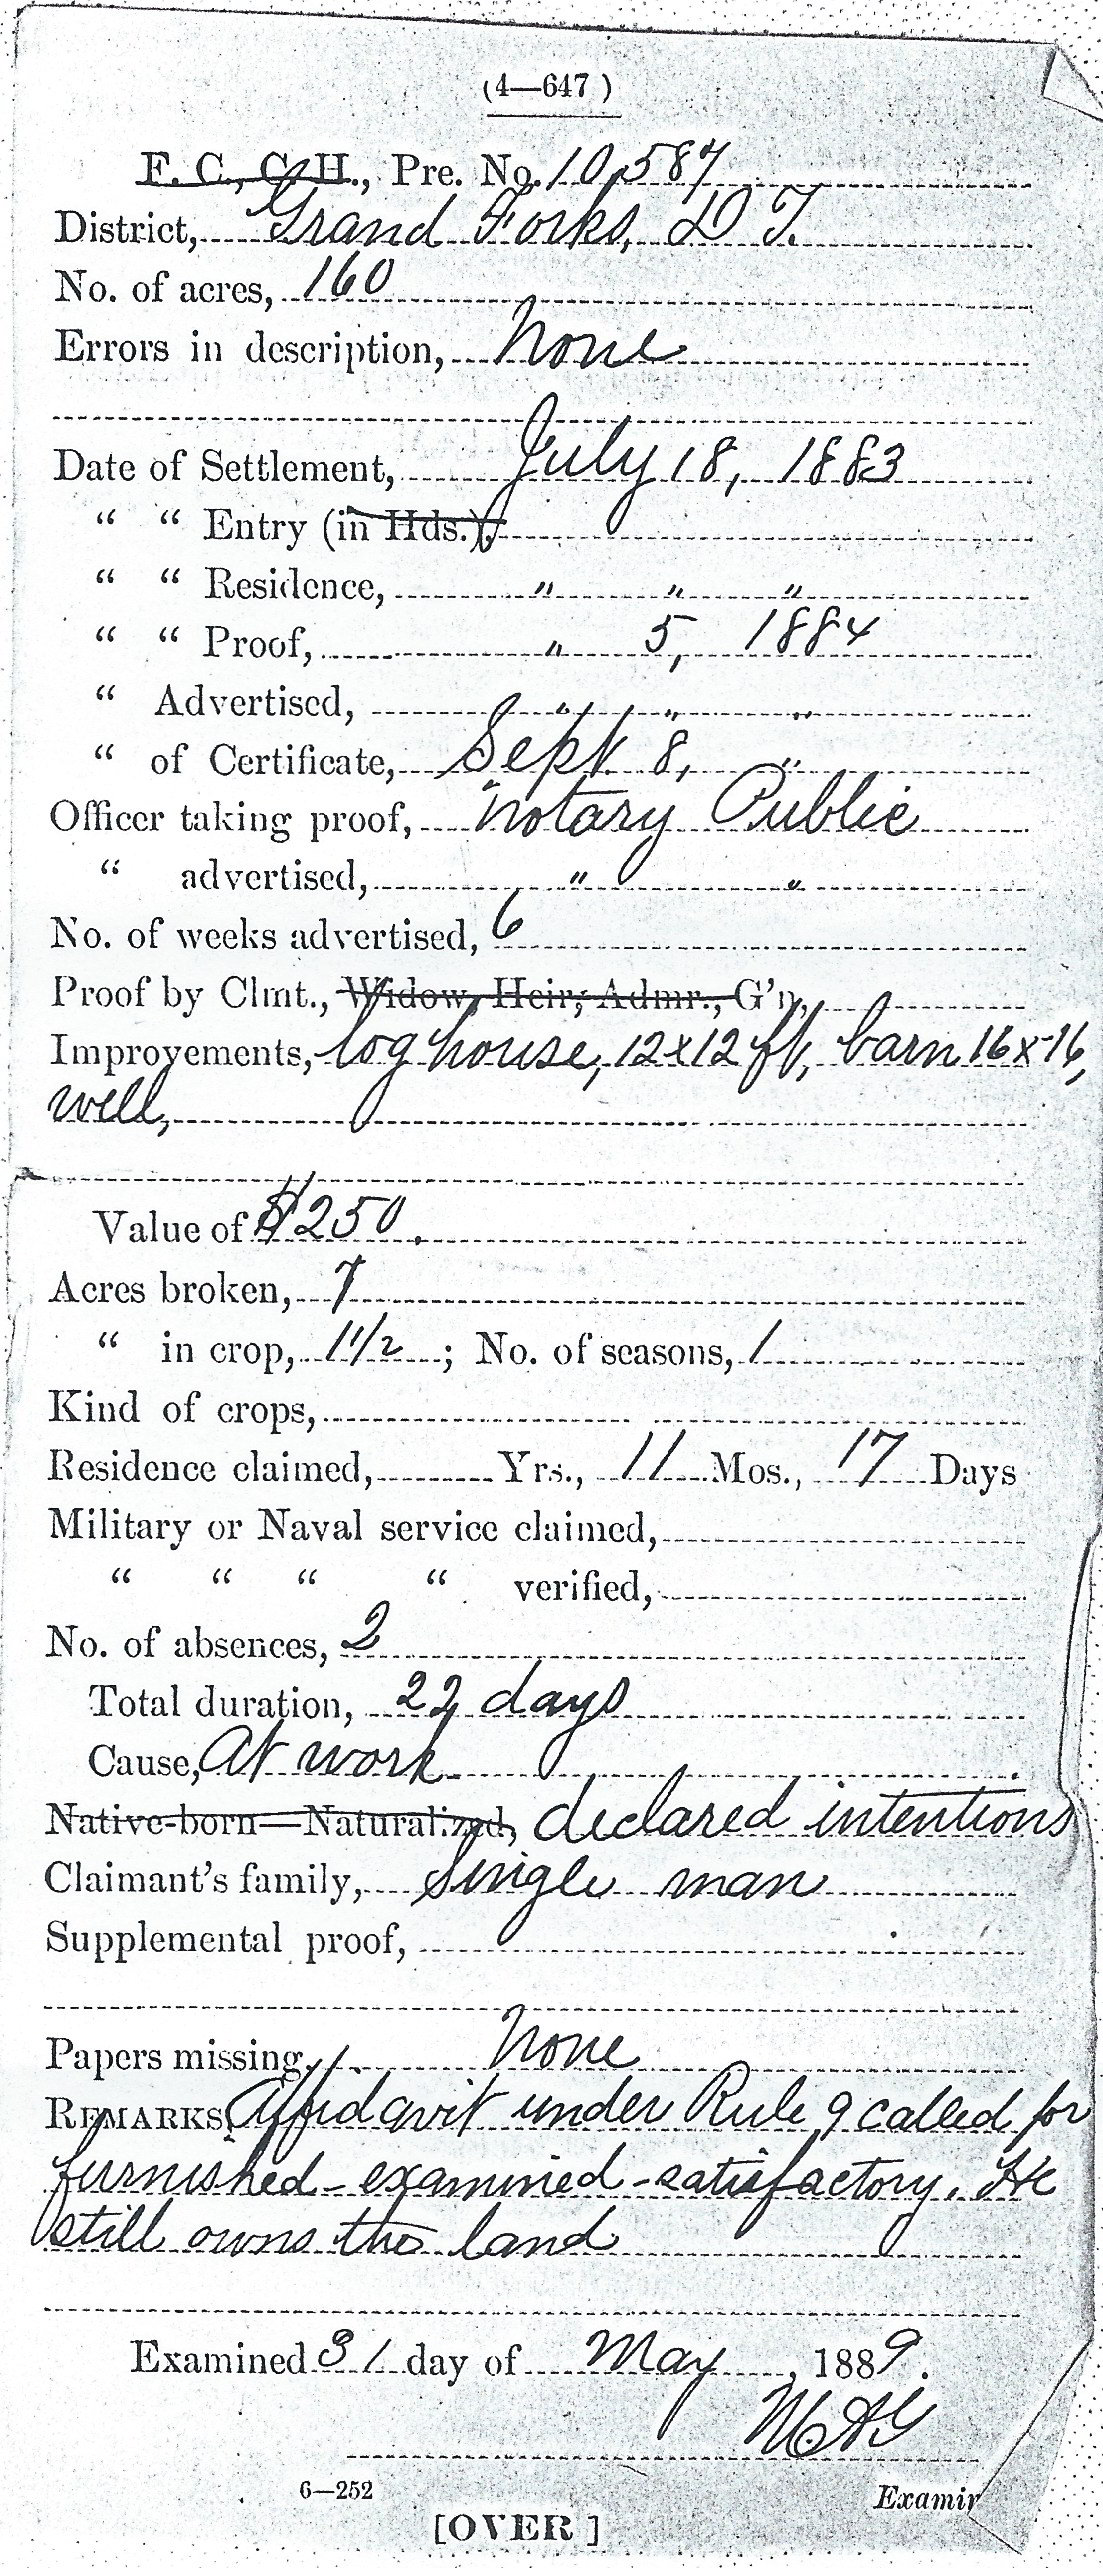 (4—647)
F. C., C. H., Pre. No. 10,587
District, Grand Forks, D T.
No. of acres, 160
Errors in description, None
Date of Settlement, July 18, 1883
" " Entry (in Hds.),
" " Residence, " " "
" " Proof, " 5, 1884
" Advertised, " " "
" of Certificate, Sept. 8, "
Officer taking proof, Notary Public
" advertised, " "
No. of weeks advertised, 6
Proof by Clmt., Widow, Heir, Admr., G'n,
Improvements, log house, 12x12 ft, barn 16x16,
well,
Value of $250.
Acres broken, 7
" in crop, 1 1/2; No. of seasons, 1
Kind of crops,
Residence claimed, Yrs., 11 Mos., 17 Days
Military or Naval service claimed,
" " " " verified,
No. of absences, 2
Total duration, 22 days
Cause, At work
Native-born—Naturalized, declared intentions
Claimant's family, Single man
Supplemental proof,
Papers missing, None
REMARKS. Affidavit under Rule 9 called for
furnished - examined - satisfactory. He
still owns the land
Examined 31 day of May, 1889.
6—252
Examin
[OVER]